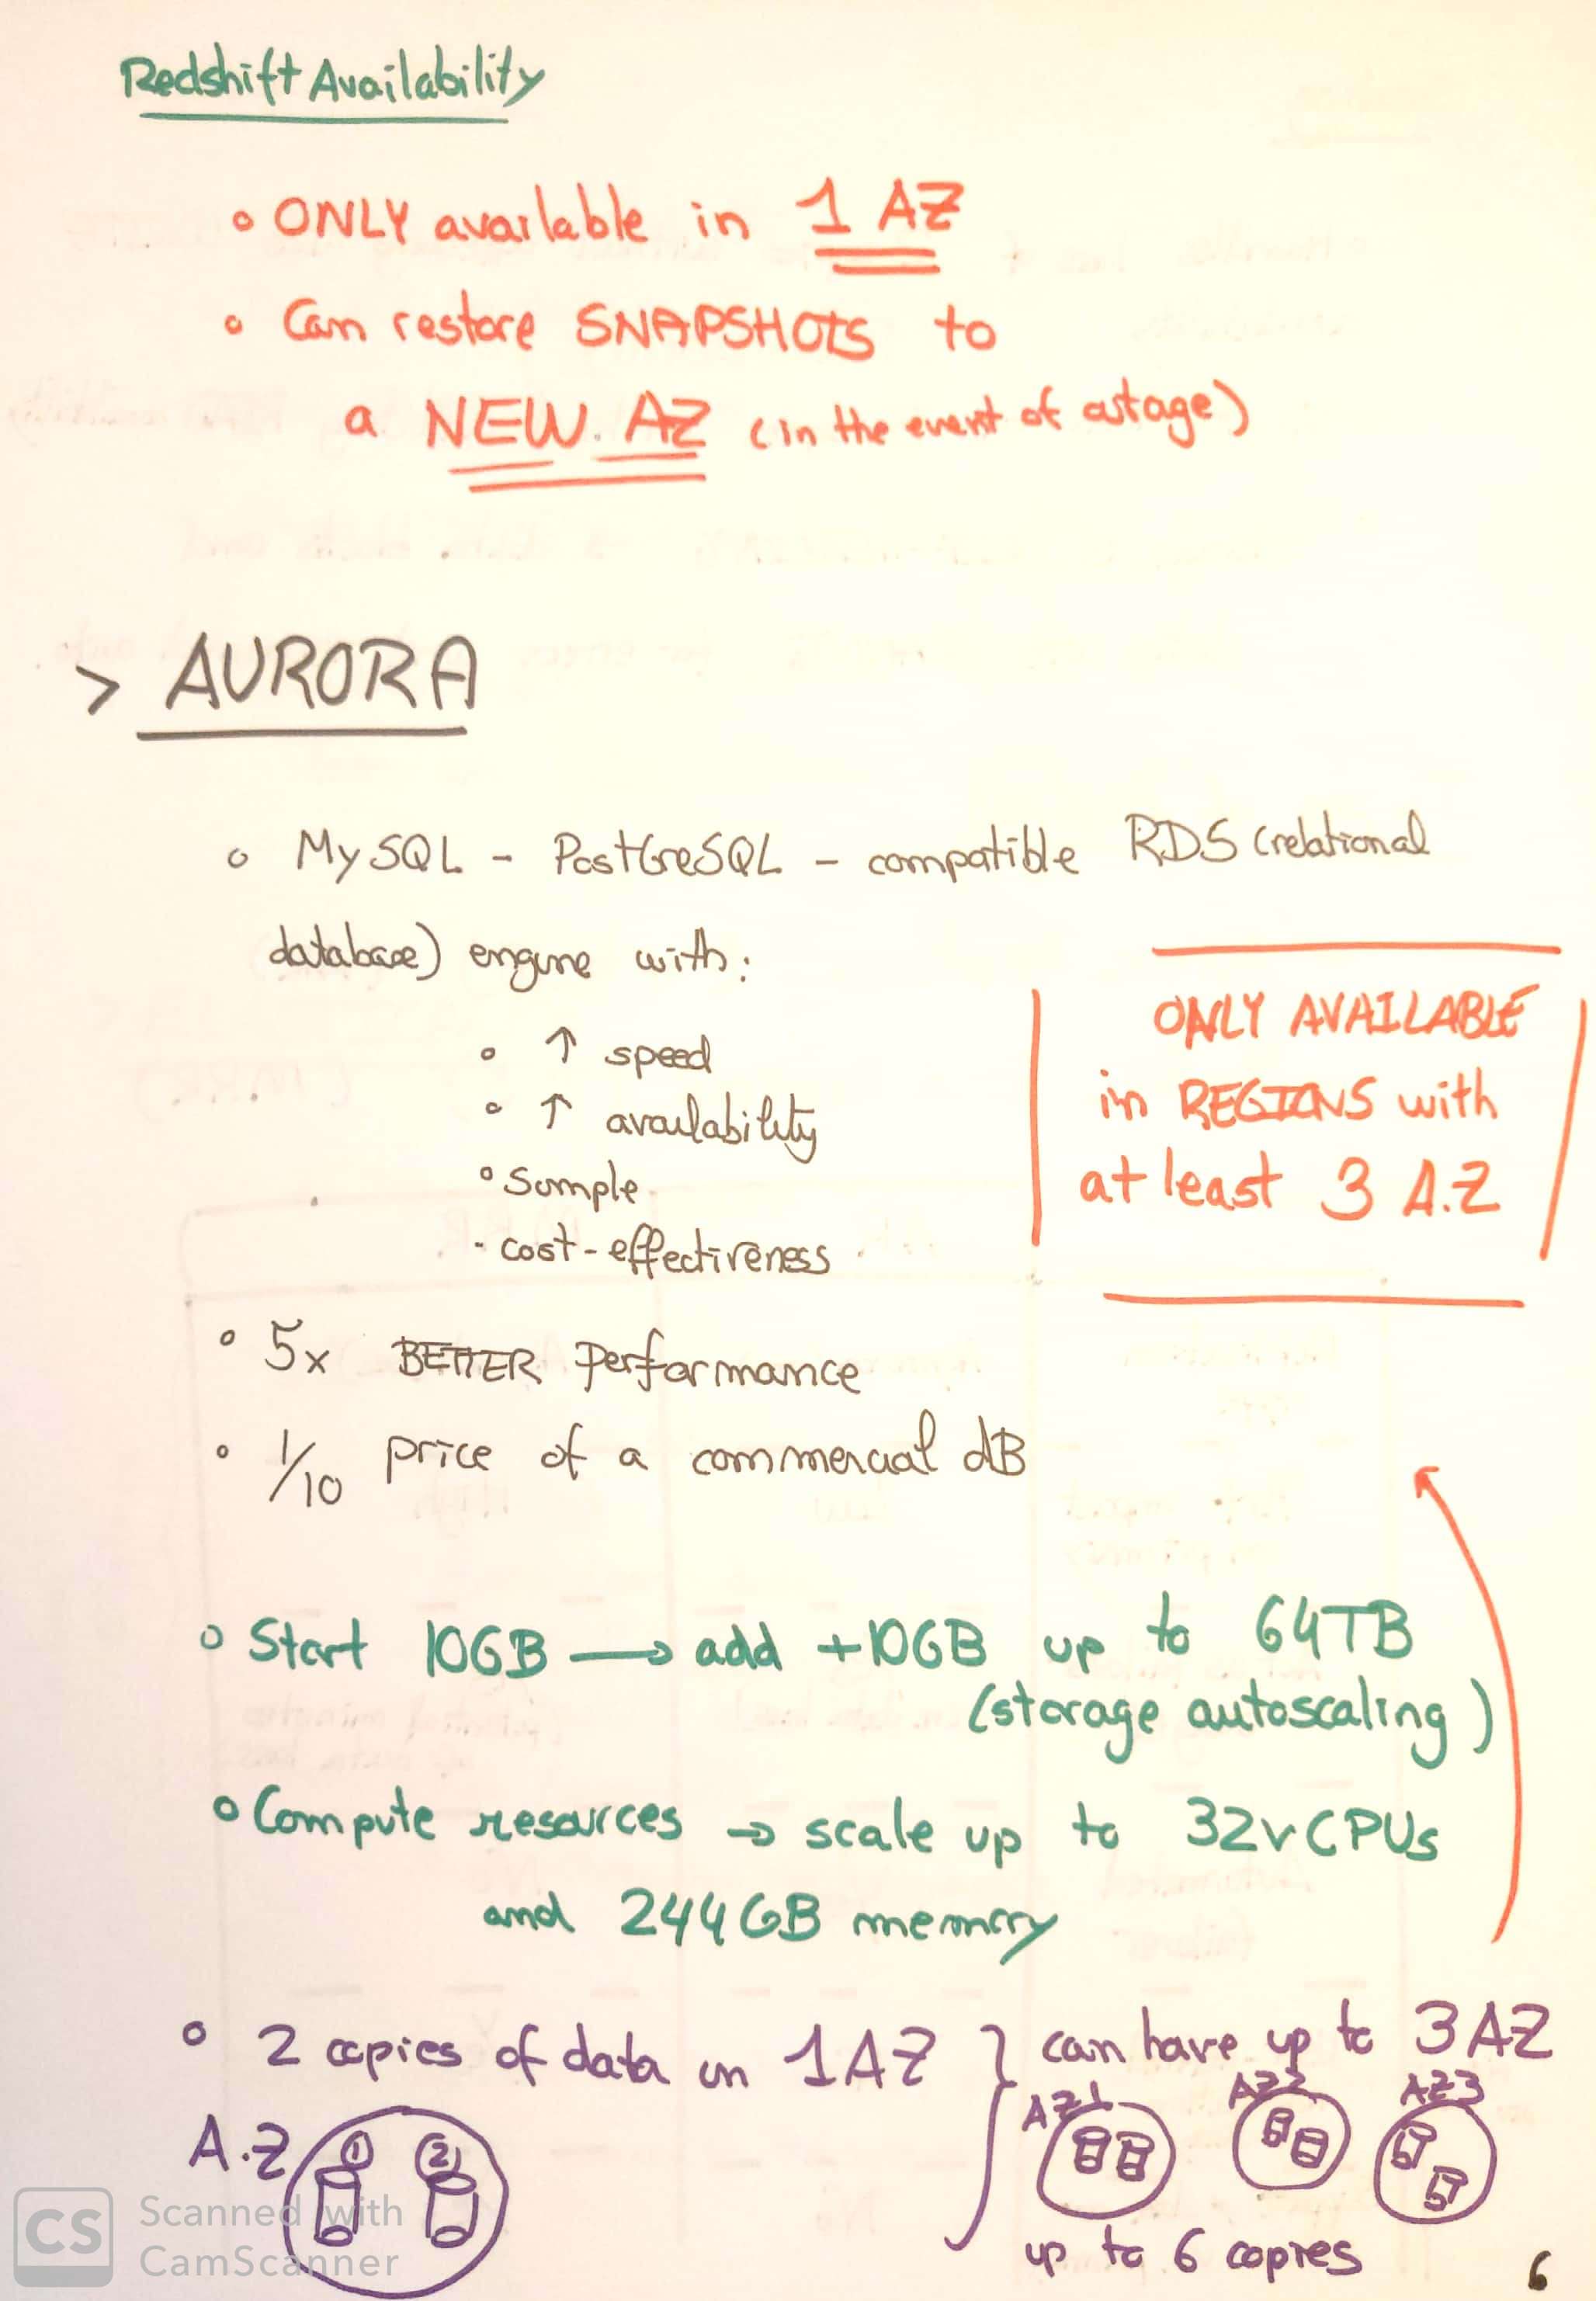 Redshift Availability
• ONLY available in 1 AZ
• Can restore SNAPSHOTS to
a NEW AZ (in the event of outage)
> AURORA
• MySQL - PostGreSQL - compatible RDS (relational
database) engine with:
• ↑ speed
• ↑ availability
• Simple
- cost-effectiveness
ONLY AVAILABLE
in REGIONS with
at least 3 A.Z
• 5x BETTER performance
• 1/10 price of a commercial dB
• Start 10GB → add +10GB up to 64TB
(storage autoscaling)
• Compute resources → scale up to 32vCPUs
and 244GB memory
• 2 copies of data in 1AZ } can have up to 3AZ
A.Z 1 2
AZ1 AZ2 AZ3
up to 6 copies
6
CS Scanned with
CamScanner